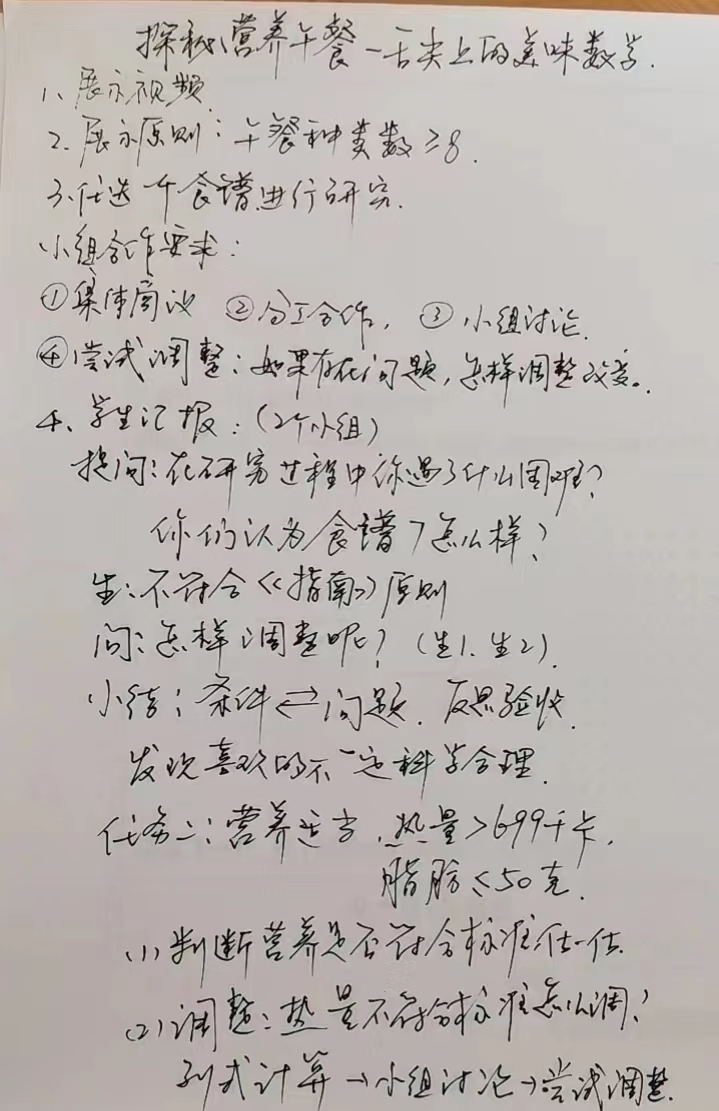 探秘营养午餐—舌尖上的美味数学.
1、展示视频
2、展示原则：午餐种类数≥8.
3、任选一个食谱进行研究.
小组合作要求：
①集体商议 ②分工合作, ③小组讨论.
④尝试调整：如果存在问题,怎样调整改变。
4、学生汇报：(2个小组)
提问：在研究过程中你遇了什么困难?
你们认为食谱7怎么样?
生：不符合《指南》原则
问：怎样调整呢?(生1.生2).
小结：条件⇄问题.反思验收.
发现喜欢的不一定科学合理.
任务二：营养适当.热量>699千卡.
脂肪≤50克.
(1)判断营养是否符合标准估一估.
(2)调整：热量不符合标准怎么调?
列式计算→小组讨论→尝试调整.